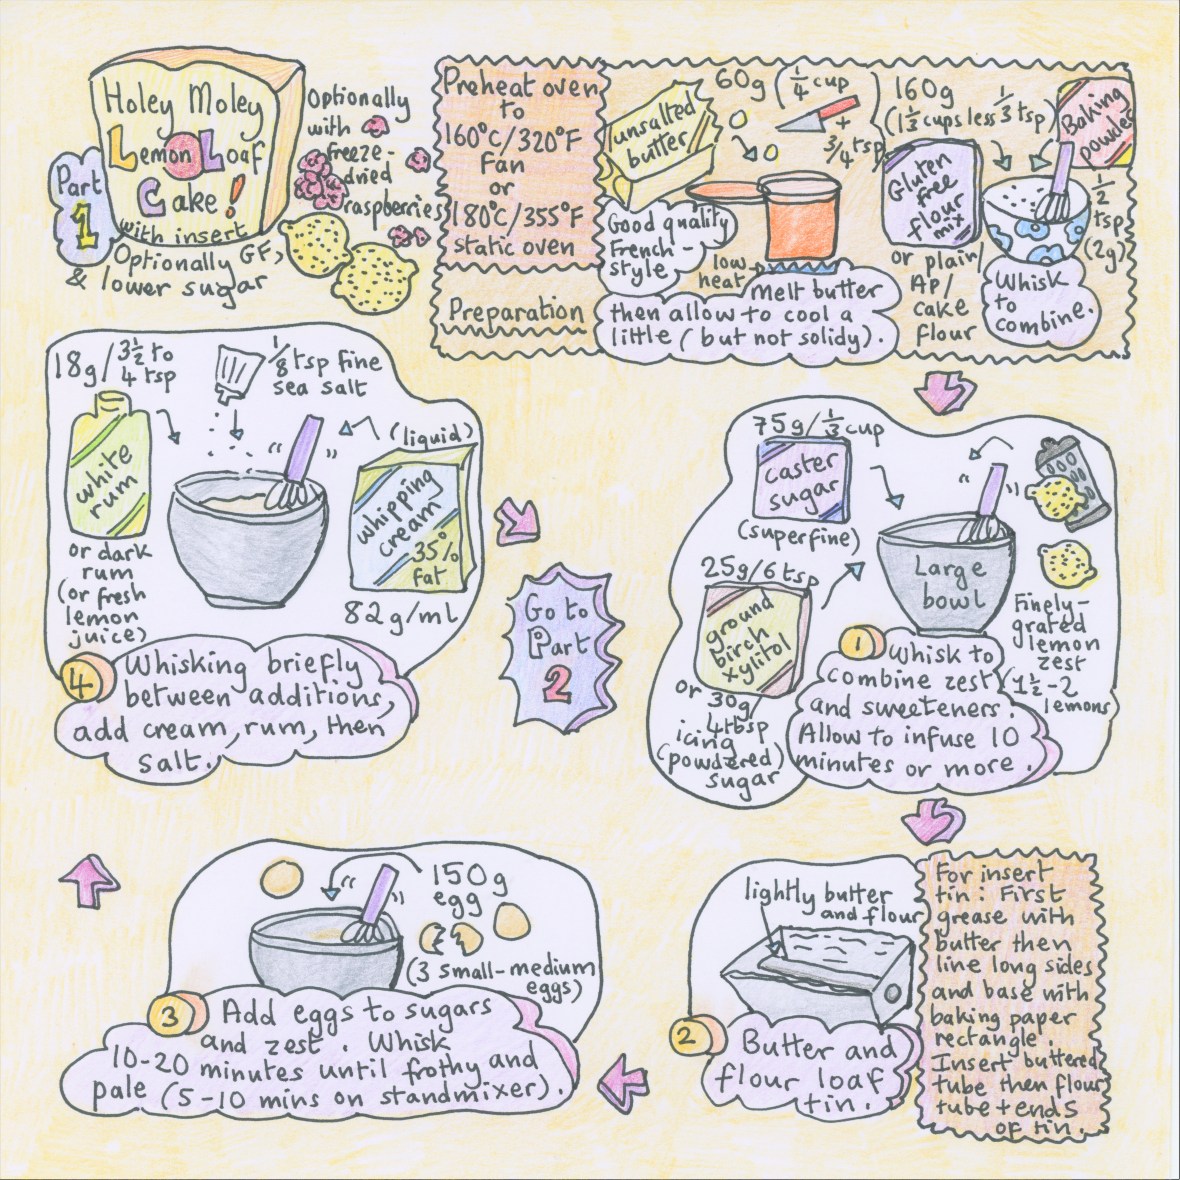 Holey Moley
Lemon Loaf
Cake!
with insert
Part
1
Optionally GF,
& lower sugar
Optionally
with
freeze-
dried
raspberries
Preheat oven
to
160°C/320°F
Fan
or
180°C/355°F
static oven
Preparation
unsalted
butter
60g (1/4 cup
+
3/4 tsp)
Good quality
French-
style
low
heat
Melt butter
then allow to cool a
little (but not solidy).
160g
(1 1/3 cups less 1/3 tsp)
Gluten
free
flour
mix
or plain/
AP/
cake
flour
Baking
powder
1/2
tsp
(2g)
Whisk
to
combine.
75g/1/3 cup
caster
sugar
(superfine)
25g/6 tsp
ground
birch
xylitol
or 30g
4 tbsp
icing
(powdered)
sugar
Large
bowl
Finely-
grated
lemon
zest
(1 1/2-2
lemons)
1
Whisk to
combine zest
and sweeteners.
Allow to infuse 10
minutes or more.
lightly butter
and flour
2
Butter and
flour loaf
tin.
For insert
tin: First
grease with
butter then
line long sides
and base with
baking paper
rectangle.
Insert buttered
tube then flour
tube + ends
of tin.
150g
egg
(3 small-medium
eggs)
3
Add eggs to sugars
and zest. Whisk
10-20 minutes until frothy and
pale (5-10 mins on standmixer).
18g/3 1/2 to
4 tsp
white
rum
or dark
rum
(or fresh
lemon
juice)
1/8 tsp fine
sea salt
(liquid)
whipping
cream
35%
fat
82g/ml
4
Whisking briefly
between additions,
add cream, rum, then
salt.
Go to
Part
2